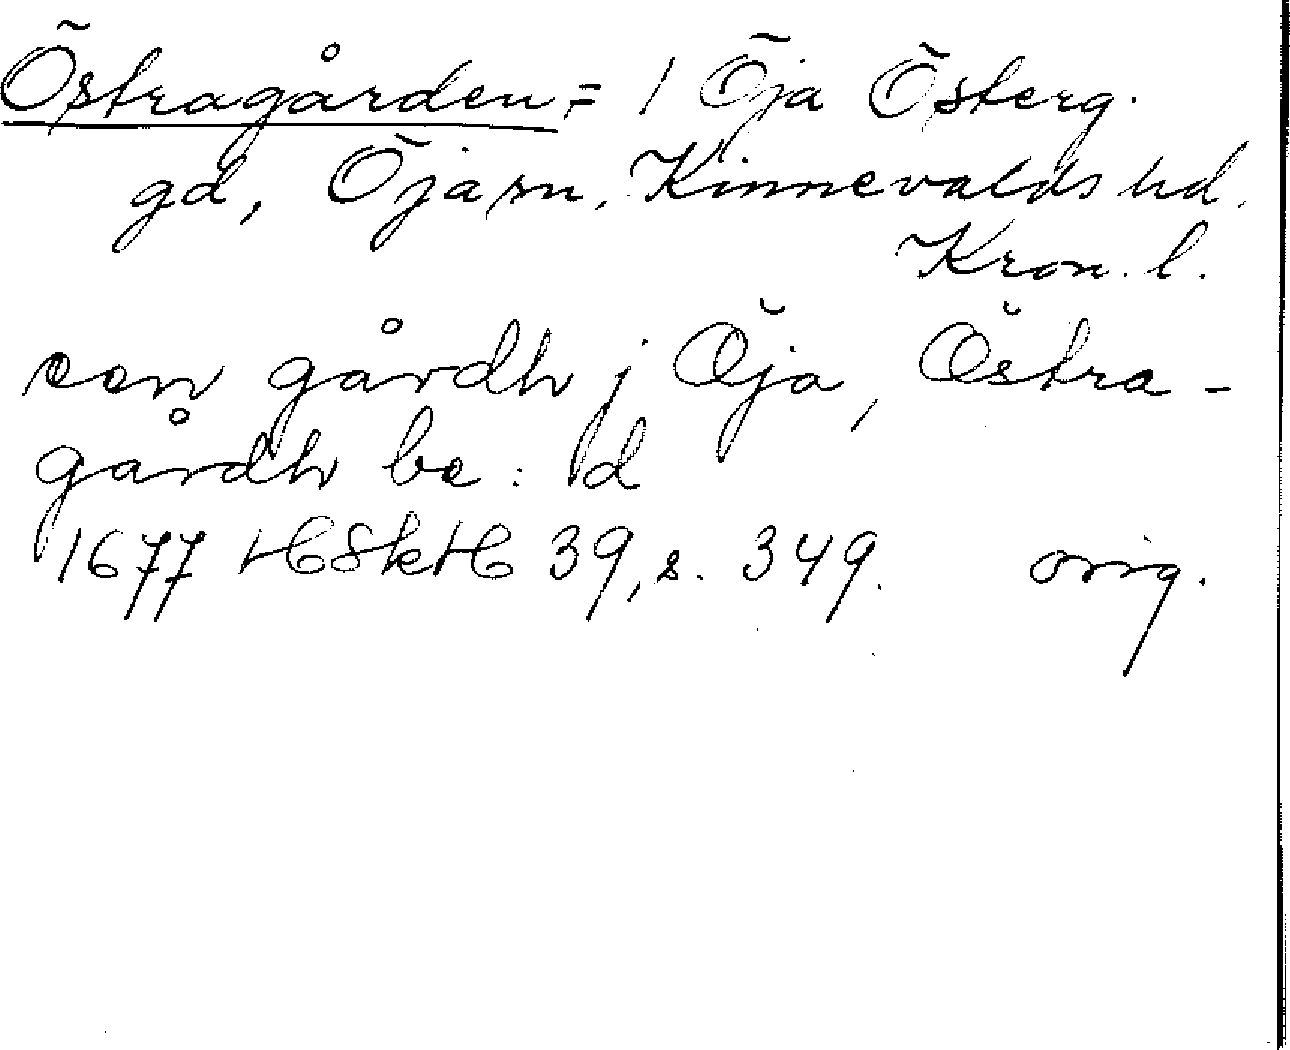 Östragården = 1 Öja Österg.
gd, Öja sn, Kinnevalds hd.
Kron. l.
een gårdh j Öja, Östra-
gårdh be: d
1677 HSkH 39, s. 349. orig.